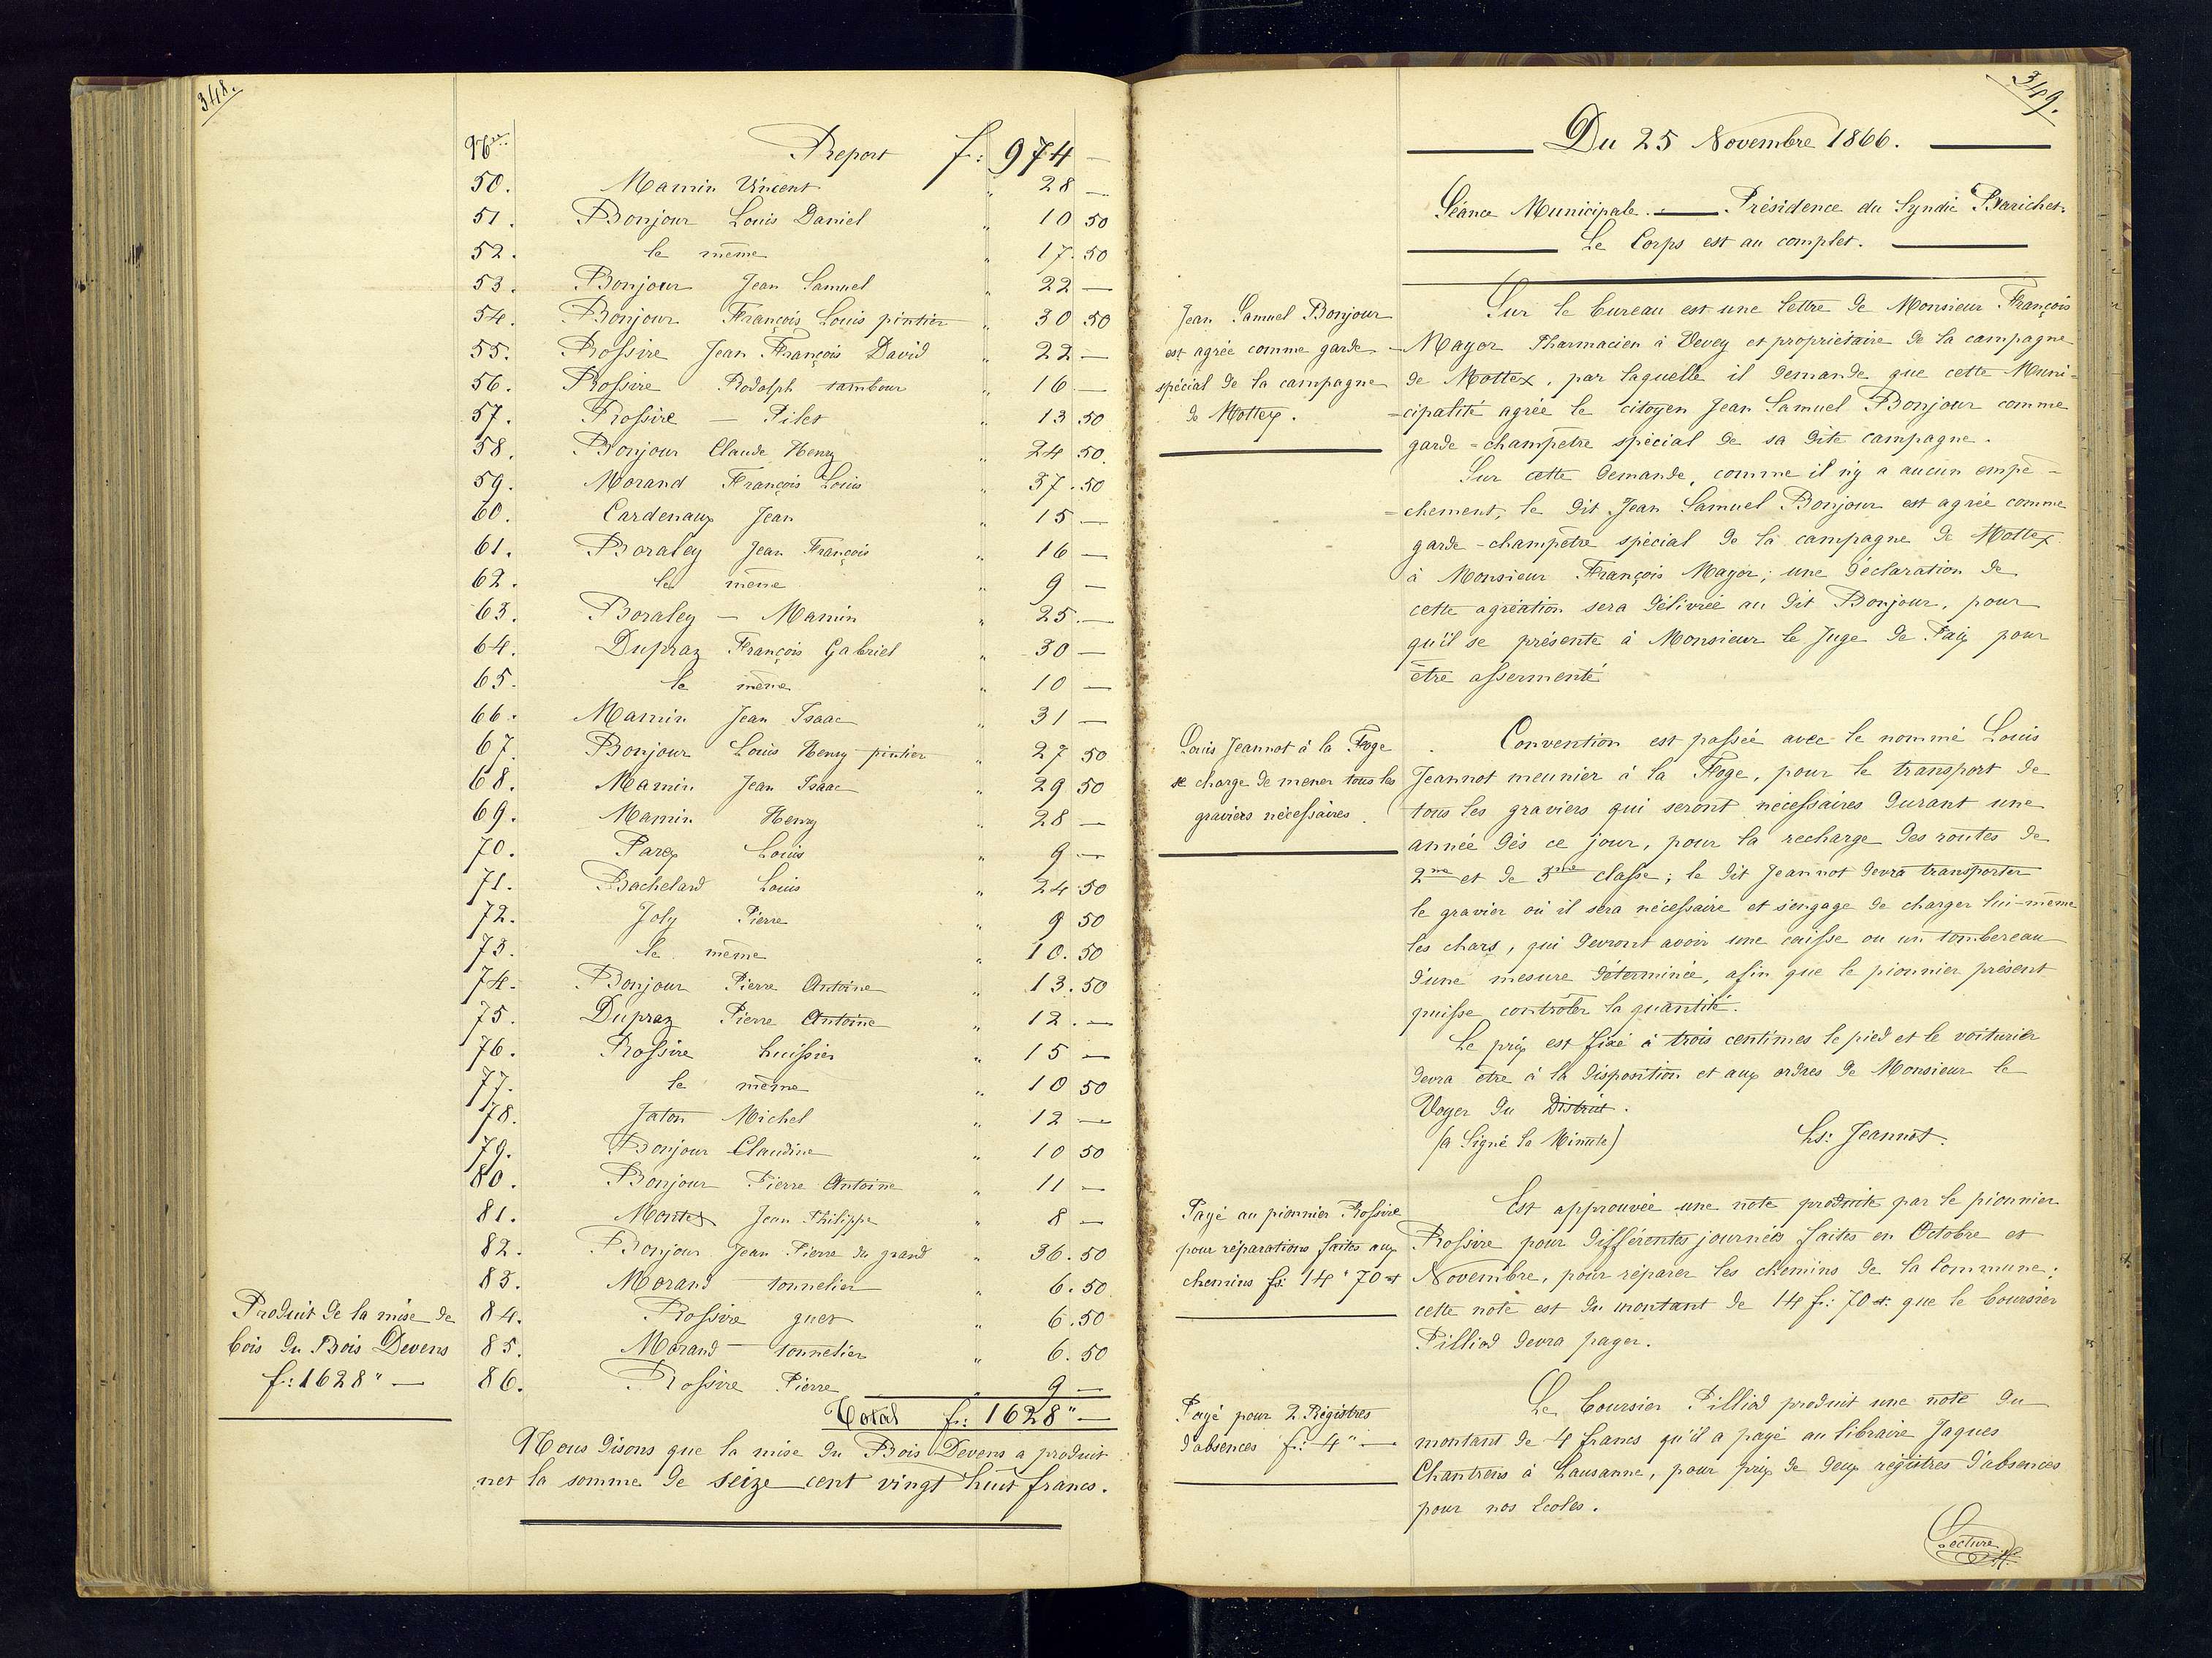 348.
Nos
Report f: 974 —
50. Mamin Vincent " 28 —
51. Bonjour Louis Daniel " 10 50
52. le même " 17. 50
53. Bonjour Jean Samuel " 22 —
54. Bonjour François Louis pintier " 30 50
55. Rossire Jean François David " 22 —
56. Rossire Rodolph tambour " 16 —
57. Rossire — Pilet " 13 50
58. Bonjour Claude Henry " 24 50.
59. Morand François Louis " 37. 50
60. Cardenaux Jean " 15 —
61. Boraley Jean François " 16 —
62. le même " 9 —
63. Boraley — Mamin " 25. —
64. Dupraz François Gabriel " 30 —
65. le même " 10 —
66. Mamin Jean Isaac " 31 —
67. Bonjour Louis Henry pintier " 27 50
68. Mamin Jean Isaac " 29 50
69. Mamin Henry " 28 —
70. Parex Louis " 9 —
71. Bachelard Louis " 24 50
72. Joly Pierre " 9 50
73. le même " 10. 50
74. Bonjour Pierre Antoine " 13. 50
75. Dupraz Pierre Antoine " 12. —
76. Rossire huissier " 15 —
77. le même " 10 50
78. Jaton Michel " 12 —
79. Bonjour Claudine " 10 50
80. Bonjour Pierre Antoine " 11 —
81. Montet Jean Philippe " 8 —
82. Bonjour Jean Pierre du grand " 36. 50
83. Morand tonnelier " 6. 50
84. Rossire guet " 6. 50
85. Morand tonnelier " 6. 50
86. Rossire Pierre " 9 —
Total f: 1628 " —
Produit de la mise de
bois du Bois Devens
f: 1628 " —
Nous disons que la mise du Bois Devens a produit
net la somme de seize cent vingt huit francs.
349.
Du 25 Novembre 1866.
Séance Municipale. — Présidence du Syndic Barichet.
Le Corps est au complet.
Jean Samuel Bonjour
est agrée comme garde
spécial de la campagne
de Mottex.
Sur le bureau est une lettre de Monsieur François
Mayor Pharmacien à Vevey et propriétaire de la campagne
de Mottex, par laquelle il demande que cette Muni=
=cipalité agrée le citoyen Jean Samuel Bonjour comme
garde=champêtre spécial de sa dite campagne.
Sur cette demande, comme il n'y a aucun empê=
=chement, le dit Jean Samuel Bonjour est agrée comme
garde-champêtre spécial de la campagne de Mottex
à Monsieur François Mayor; une déclaration de
cette agréation sera délivrée au dit Bonjour, pour
qu'il se présente à Monsieur le Juge de Paix pour
être assermenté
Louis Jeannot à la Foge
se charge de mener tous les
graviers nécessaires.
Convention est passée avec le nommé Louis
Jeannot meunier à la Foge, pour le transport de
tous les graviers qui seront nécessaires durant une
année dès ce jour, pour la recharge des routes de
2me et de 3me classe; le dit Jeannot devra transporter
le gravier où il sera nécessaire et s'engage de charger lui-même
les chars, qui devront avoir une caisse ou un tombereau
d'une mesure déterminée, afin que le pionnier présent
puisse contrôler la quantité.
Le prix est fixé à trois centimes le pied et le voiturier
devra être à la disposition et aux ordres de Monsieur le
Voyer du District.
(a Signé la Minute) Ls: Jeannot.
Payé au pionnier Rossire
pour réparations faites aux
chemins fs: 14 " 70 ct
Est approuvée une note produite par le pionnier
Rossire pour différentes journées faites en Octobre et
Novembre, pour réparer les chemins de la Commune;
cette note est du montant de 14 fr: 70 ct. que le boursier
Pilliod devra payer.
Payé pour 2 Régistres
d'absences f: 4 " —
Le boursier Pilliod produit une note du
montant de 4 francs qu'il a payé au libraire Jaques
Chantrens à Lausanne, pour prix de deux régistres d'absences
pour nos Ecoles.
Lecture